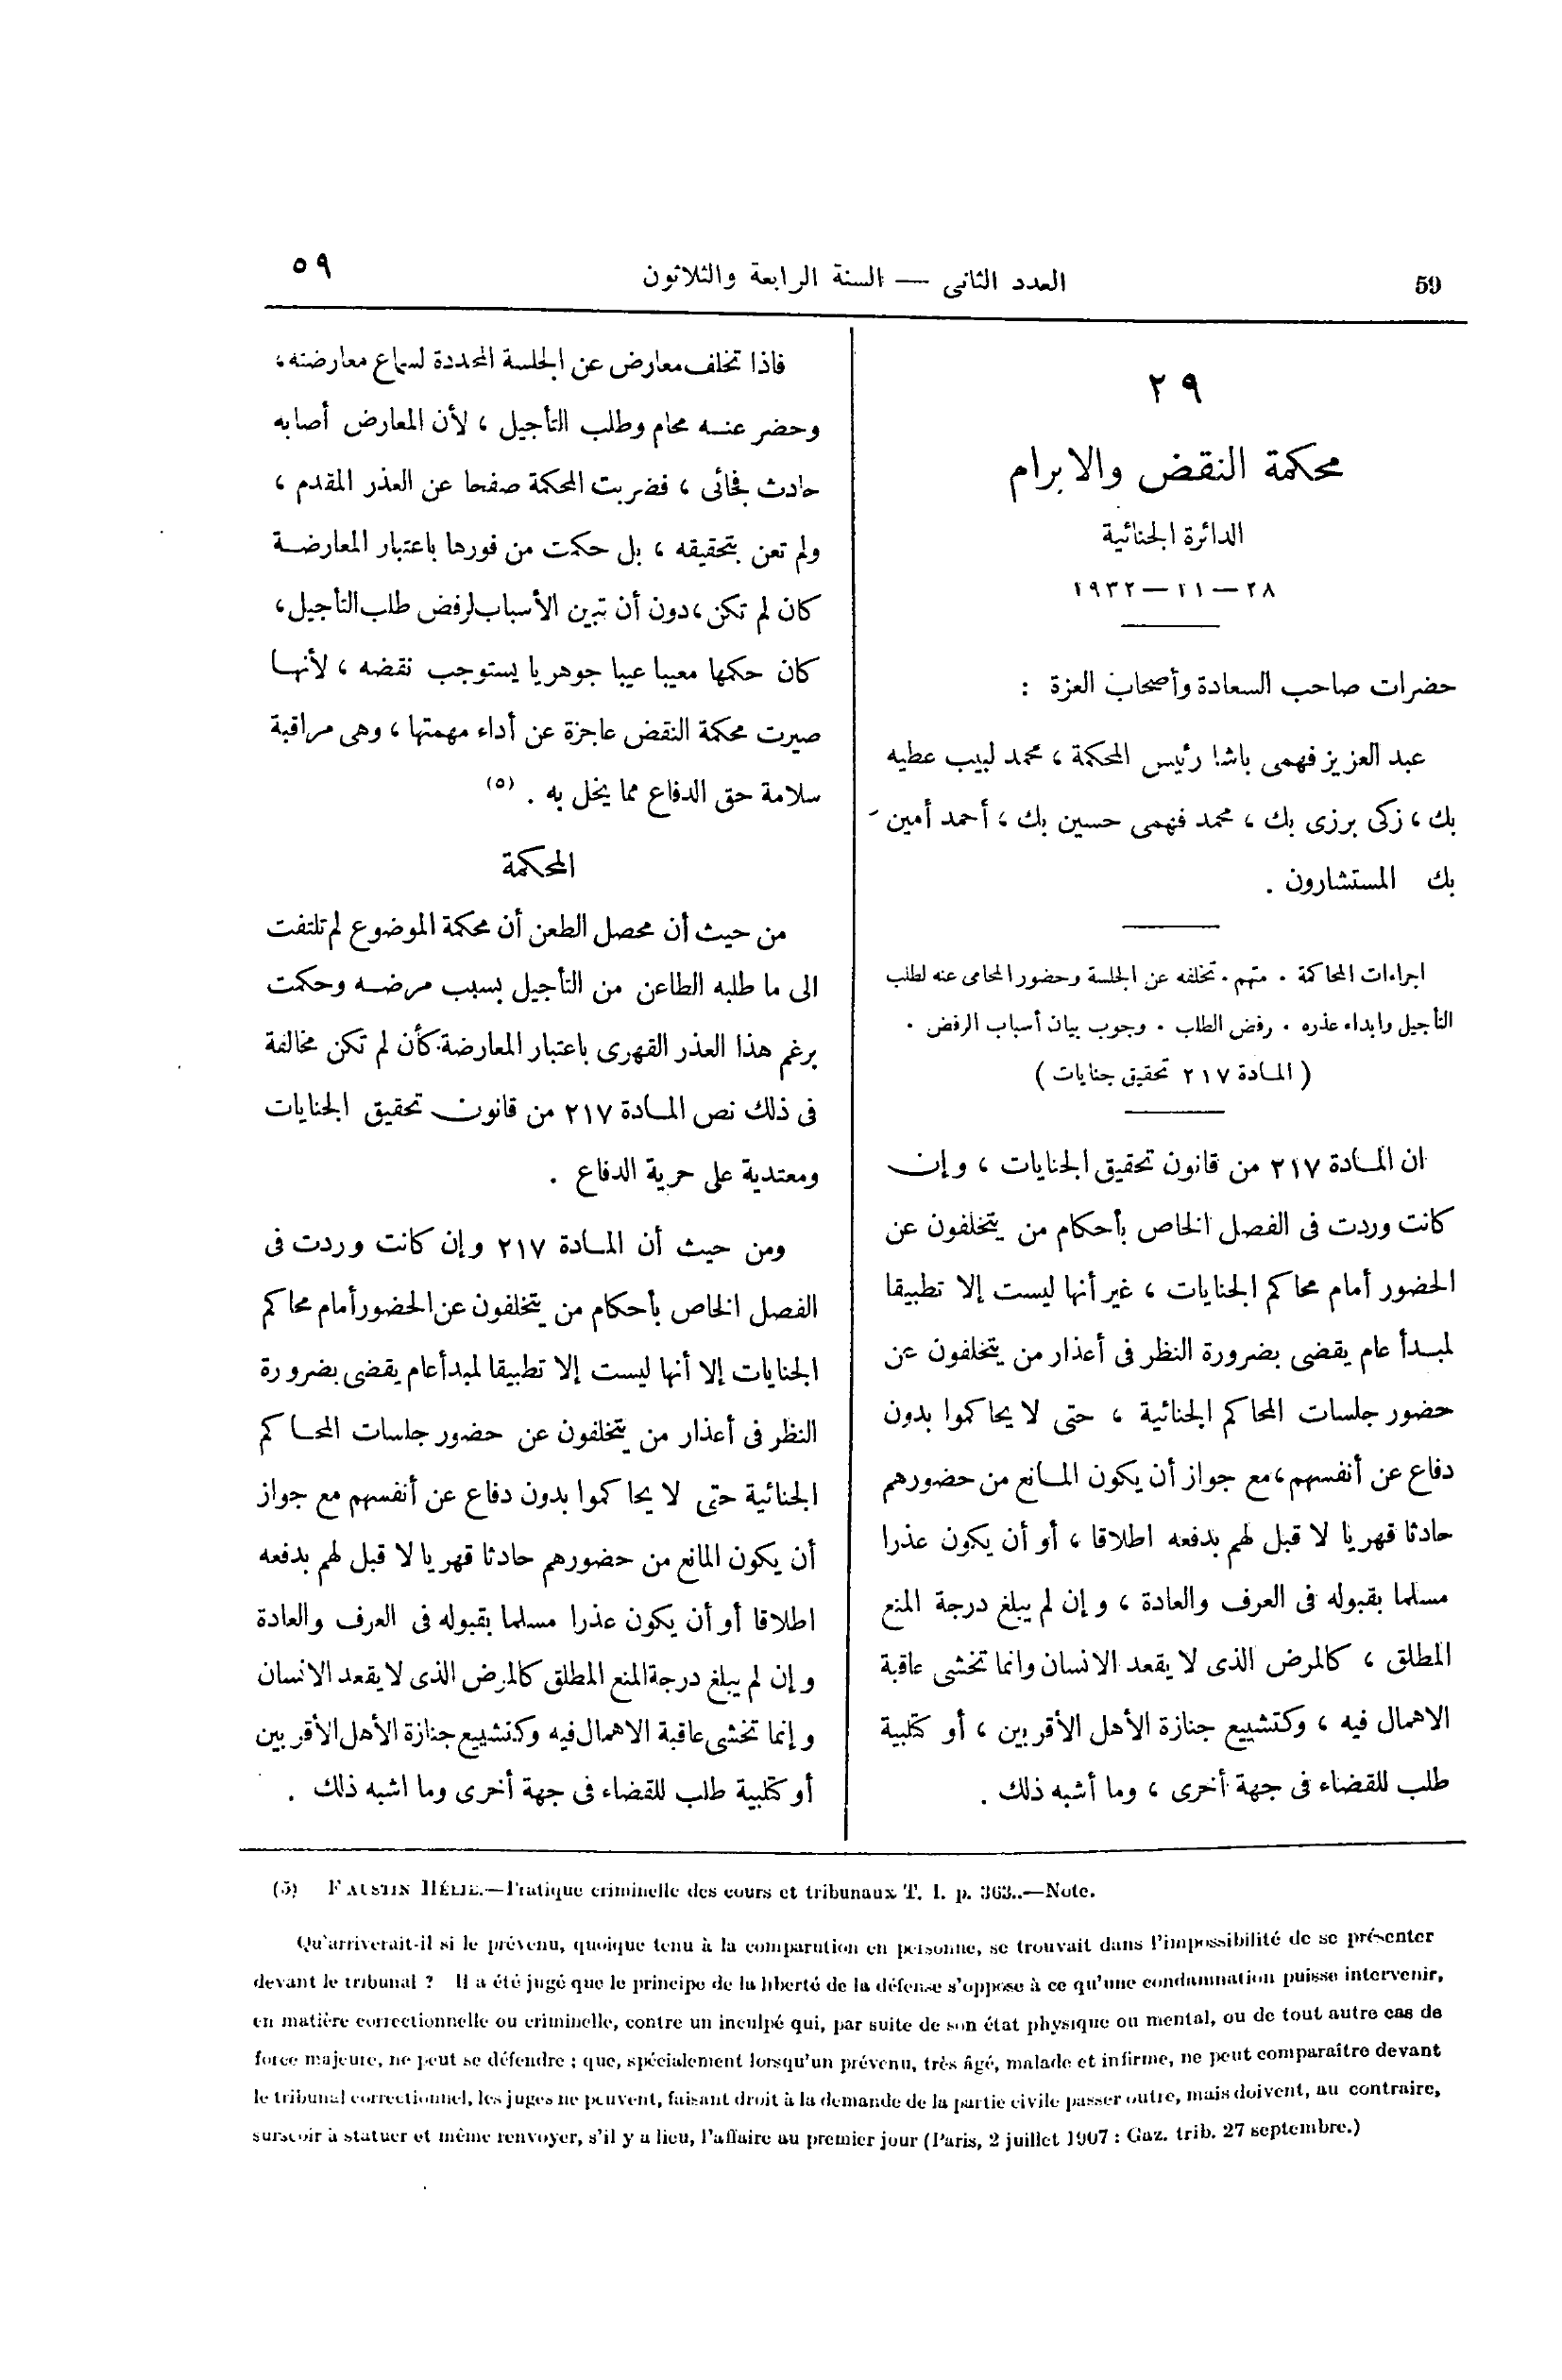 59
العدد الثانى — السنة الرابعة والثلاثون
٥٩
٢٩
محكمة النقض والابرام
الدائرة الجنائية
٢٨ — ١١ — ١٩٣٢
حضرات صاحب السعادة وأصحاب العزة :
عبد العزيز فهمى باشا رئيس المحكمة ، محمد لبيب عطيه
بك ، زكى برزى بك ، محمد فهمى حسين بك ، أحمد أمين
بك المستشارون .
اجراءات المحاكمة . متهم . تخلفه عن الجلسة وحضور المحامى عنه لطلب
التأجيل وابداء عذره . رفض الطلب . وجوب بيان أسباب الرفض .
( المادة ٢١٧ تحقيق جنايات )
ان المادة ٢١٧ من قانون تحقيق الجنايات ، وإن
كانت وردت فى الفصل الخاص بأحكام من يتخلفون عن
الحضور أمام محاكم الجنايات ، غير أنها ليست إلا تطبيقا
لمبدأ عام يقضى بضرورة النظر فى أعذار من يتخلفون عن
حضور جلسات المحاكم الجنائية ، حتى لا يحاكموا بدون
دفاع عن أنفسهم ، مع جواز أن يكون المانع من حضورهم
حادثا قهريا لا قبل لهم بدفعه اطلاقا ، أو أن يكون عذرا
مسلما بقبوله فى العرف والعادة ، وإن لم يبلغ درجة المنع
المطلق ، كالمرض الذى لا يقعد الانسان وانما تخشى عاقبة
الاهمال فيه ، وكتشييع جنازة الأهل الأقربين ، أو كتلبية
طلب للقضاء فى جهة أخرى ، وما أشبه ذلك .
فاذا تخلف معارض عن الجلسة المحددة لسماع معارضته ،
وحضر عنه محام وطلب التأجيل ، لأن المعارض أصابه
حادث فجائى ، فضربت المحكمة صفحا عن العذر المقدم ،
ولم تعن بتحقيقه ، بل حكمت من فورها باعتبار المعارضة
كان لم تكن ، دون أن تبين الأسباب لرفض طلب التأجيل ،
كان حكمها معيبا عيبا جوهريا يستوجب نقضه ، لأنها
صيرت محكمة النقض عاجزة عن أداء مهمتها ، وهى مراقبة
سلامة حق الدفاع مما يخل به . (٥)
المحكمة
من حيث أن محصل الطعن أن محكمة الموضوع لم تلتفت
الى ما طلبه الطاعن من التأجيل بسبب مرضه وحكمت
برغم هذا العذر القهرى باعتبار المعارضة كأن لم تكن مخالفة
فى ذلك نص المادة ٢١٧ من قانون تحقيق الجنايات
ومعتدية على حرية الدفاع .
ومن حيث أن المادة ٢١٧ وإن كانت وردت فى
الفصل الخاص بأحكام من يتخلفون عن الحضور أمام محاكم
الجنايات إلا أنها ليست إلا تطبيقا لمبدأ عام يقضى بضرورة
النظر فى أعذار من يتخلفون عن حضور جلسات المحاكم
الجنائية حتى لا يحاكموا بدون دفاع عن أنفسهم مع جواز
أن يكون المانع من حضورهم حادثا قهريا لا قبل لهم بدفعه
اطلاقا أو أن يكون عذرا مسلما بقبوله فى العرف والعادة
وإن لم يبلغ درجة المنع المطلق كالمرض الذى لا يقعد الانسان
وإنما تخشى عاقبة الاهمال فيه وكتشييع جنازة الأهل الأقربين
أو كتلبية طلب للقضاء فى جهة أخرى وما اشبه ذلك .
(5) FAUSTIN HÉLIE.—Pratique criminelle des cours et tribunaux T. I. p. 363..—Note.
Qu'arriverait-il si le prévenu, quoique tenu à la comparution en personne, se trouvait dans l'impossibilité de se présenter
devant le tribunal ? Il a été jugé que le principe de la liberté de la défense s'oppose à ce qu'une condamnation puisse intervenir,
en matière correctionnelle ou criminelle, contre un inculpé qui, par suite de son état physique ou mental, ou de tout autre cas de
force majeure, ne peut se défendre ; que, spécialement lorsqu'un prévenu, très âgé, malade et infirme, ne peut comparaître devant
le tribunal correctionnel, les juges ne peuvent, faisant droit à la demande de la partie civile passer outre, mais doivent, au contraire,
surseoir à statuer et même renvoyer, s'il y a lieu, l'affaire au premier jour (Paris, 2 juillet 1907 : Gaz. trib. 27 septembre.)